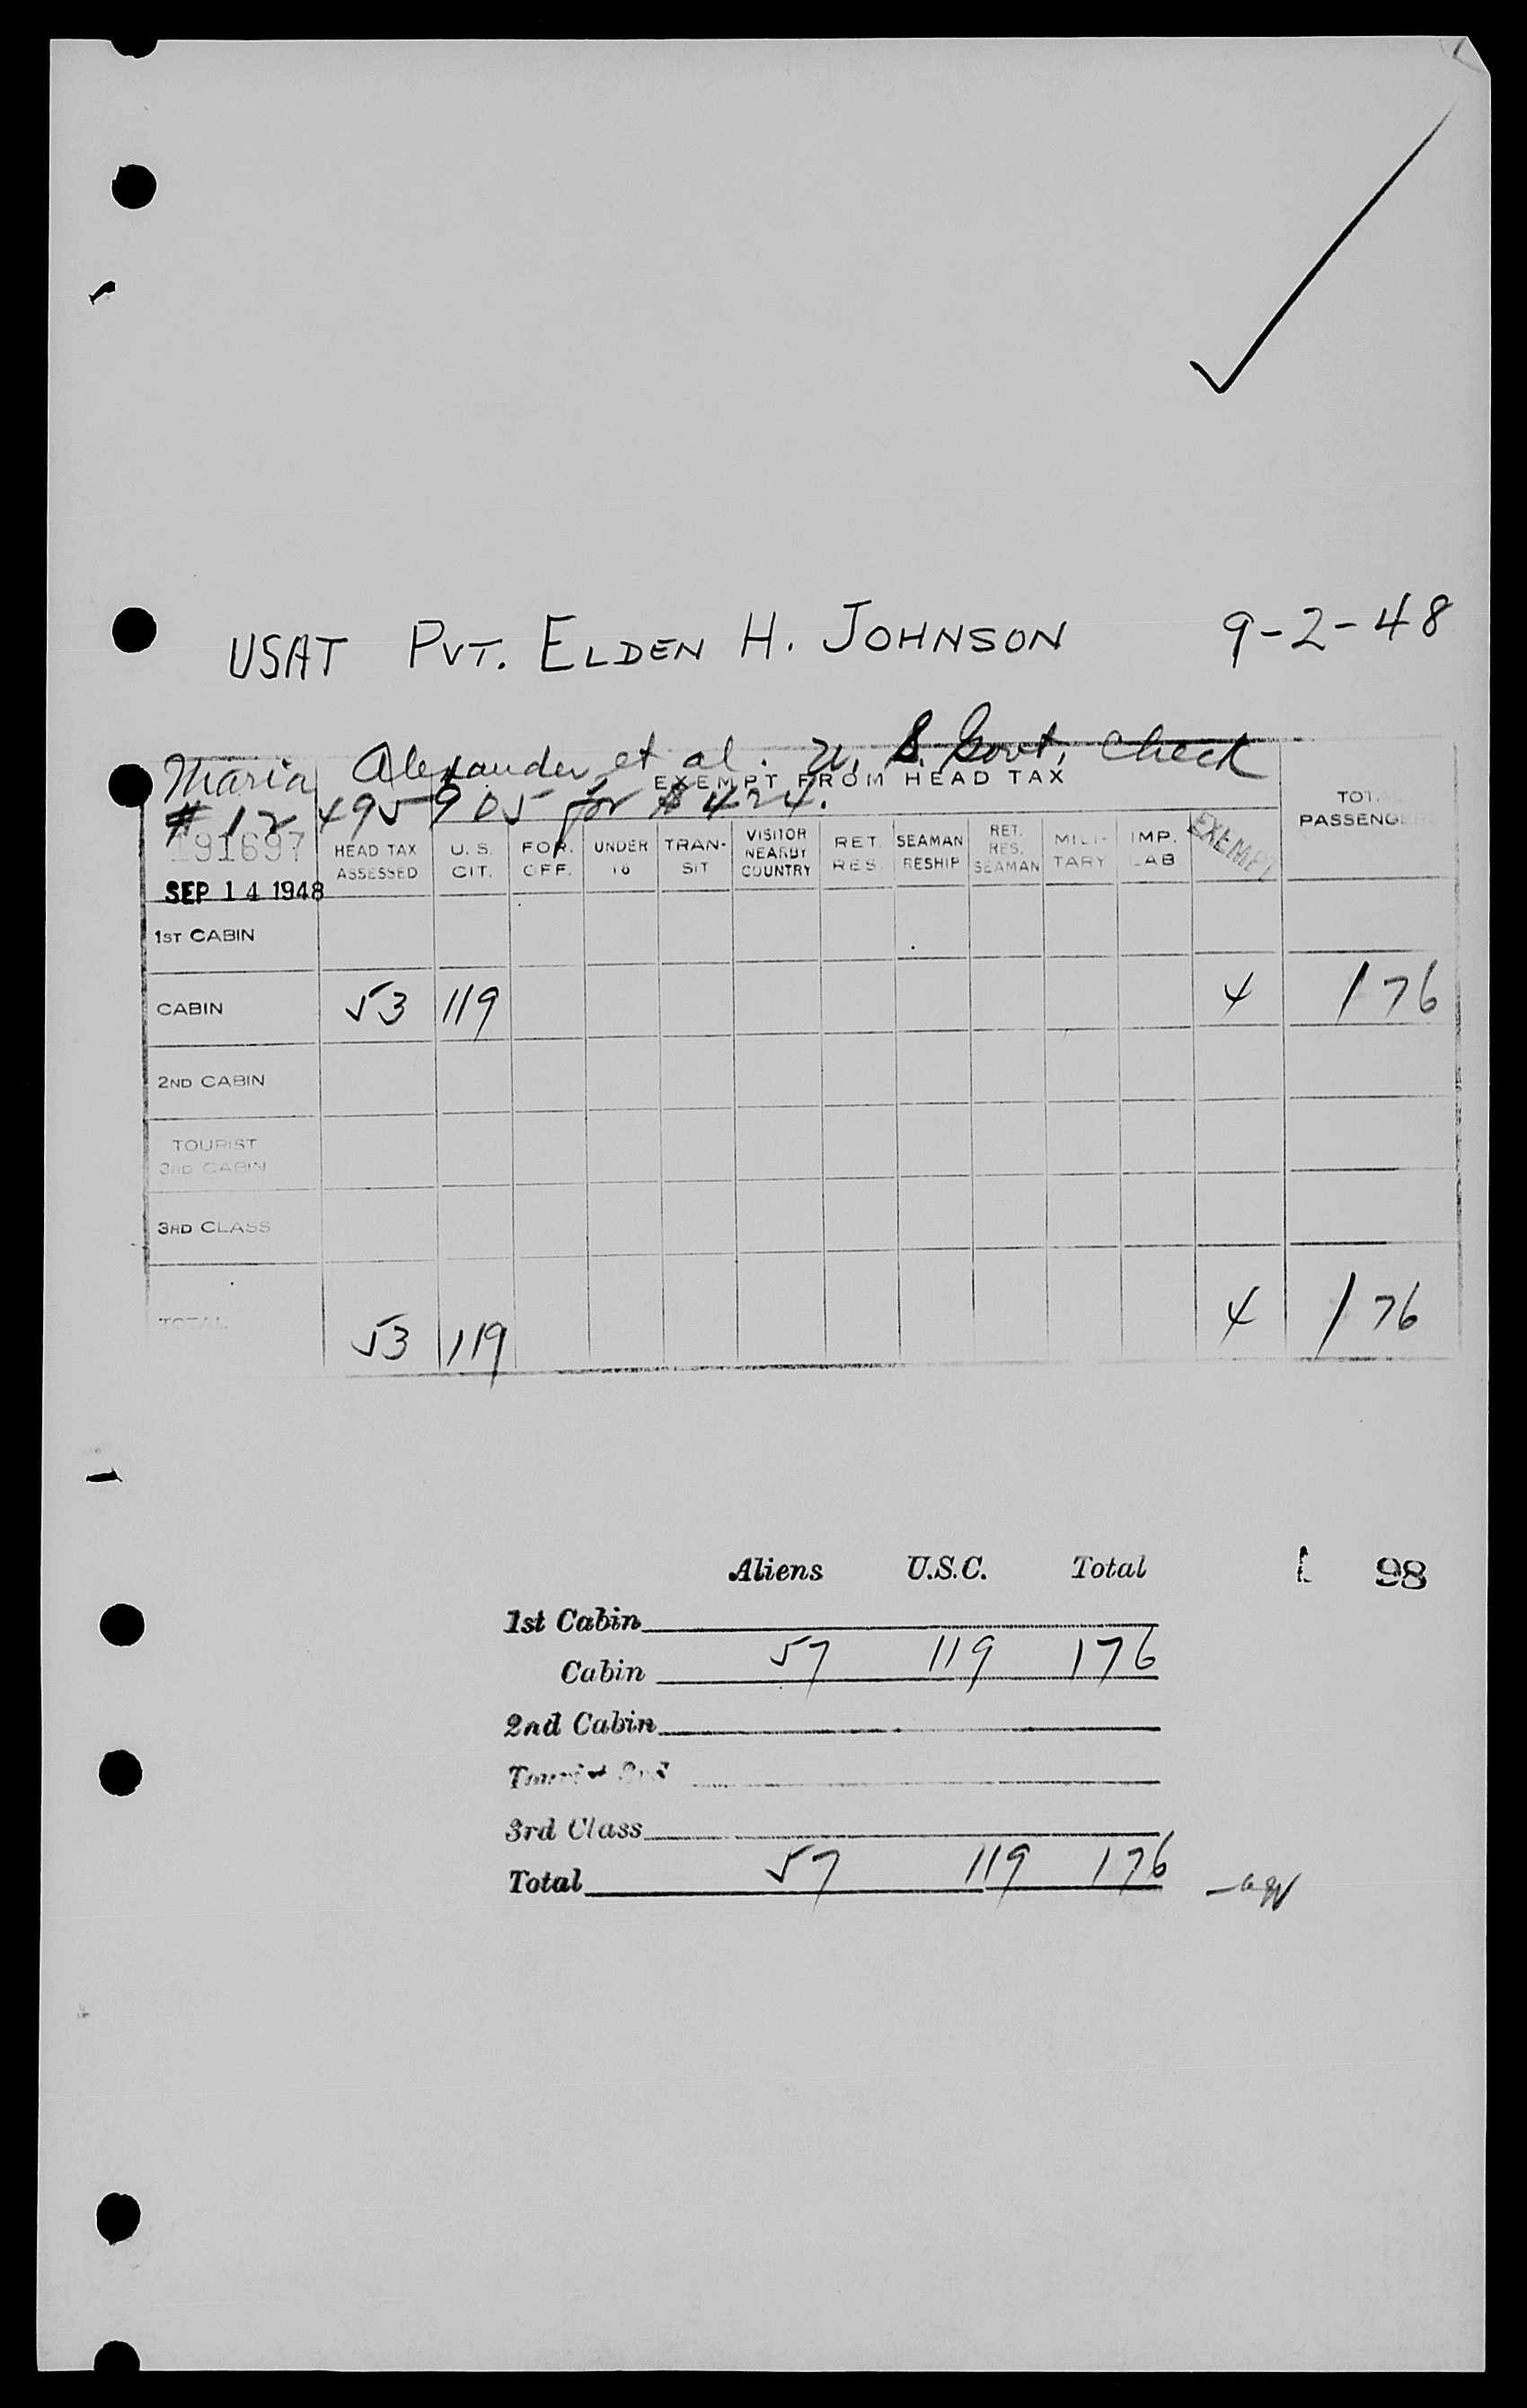 USAT PVT. ELDEN H. JOHNSON 9-2-48
Maria Alexander et al. U. S. Govt. Check
EXEMPT FROM HEAD TAX
# 12 495 905 for $ 424.
191697 HEAD TAX ASSESSED U. S. CIT. FOR. OFF. UNDER 16 TRAN-SIT VISITOR NEARBY COUNTRY RET. RES. SEAMAN RESHIP RET. RES. SEAMAN MILI-TARY IMP. LAB EXEMPT TOTAL PASSENGERS
SEP 14 1948
1ST CABIN
CABIN 53 119 4 176
2ND CABIN
TOURIST
3RD CABIN
3RD CLASS
TOTAL 53 119 4 176
Aliens U.S.C. Total 98
1st Cabin
Cabin 57 119 176
2nd Cabin
Tourist 3rd
3rd Class
Total 57 119 176